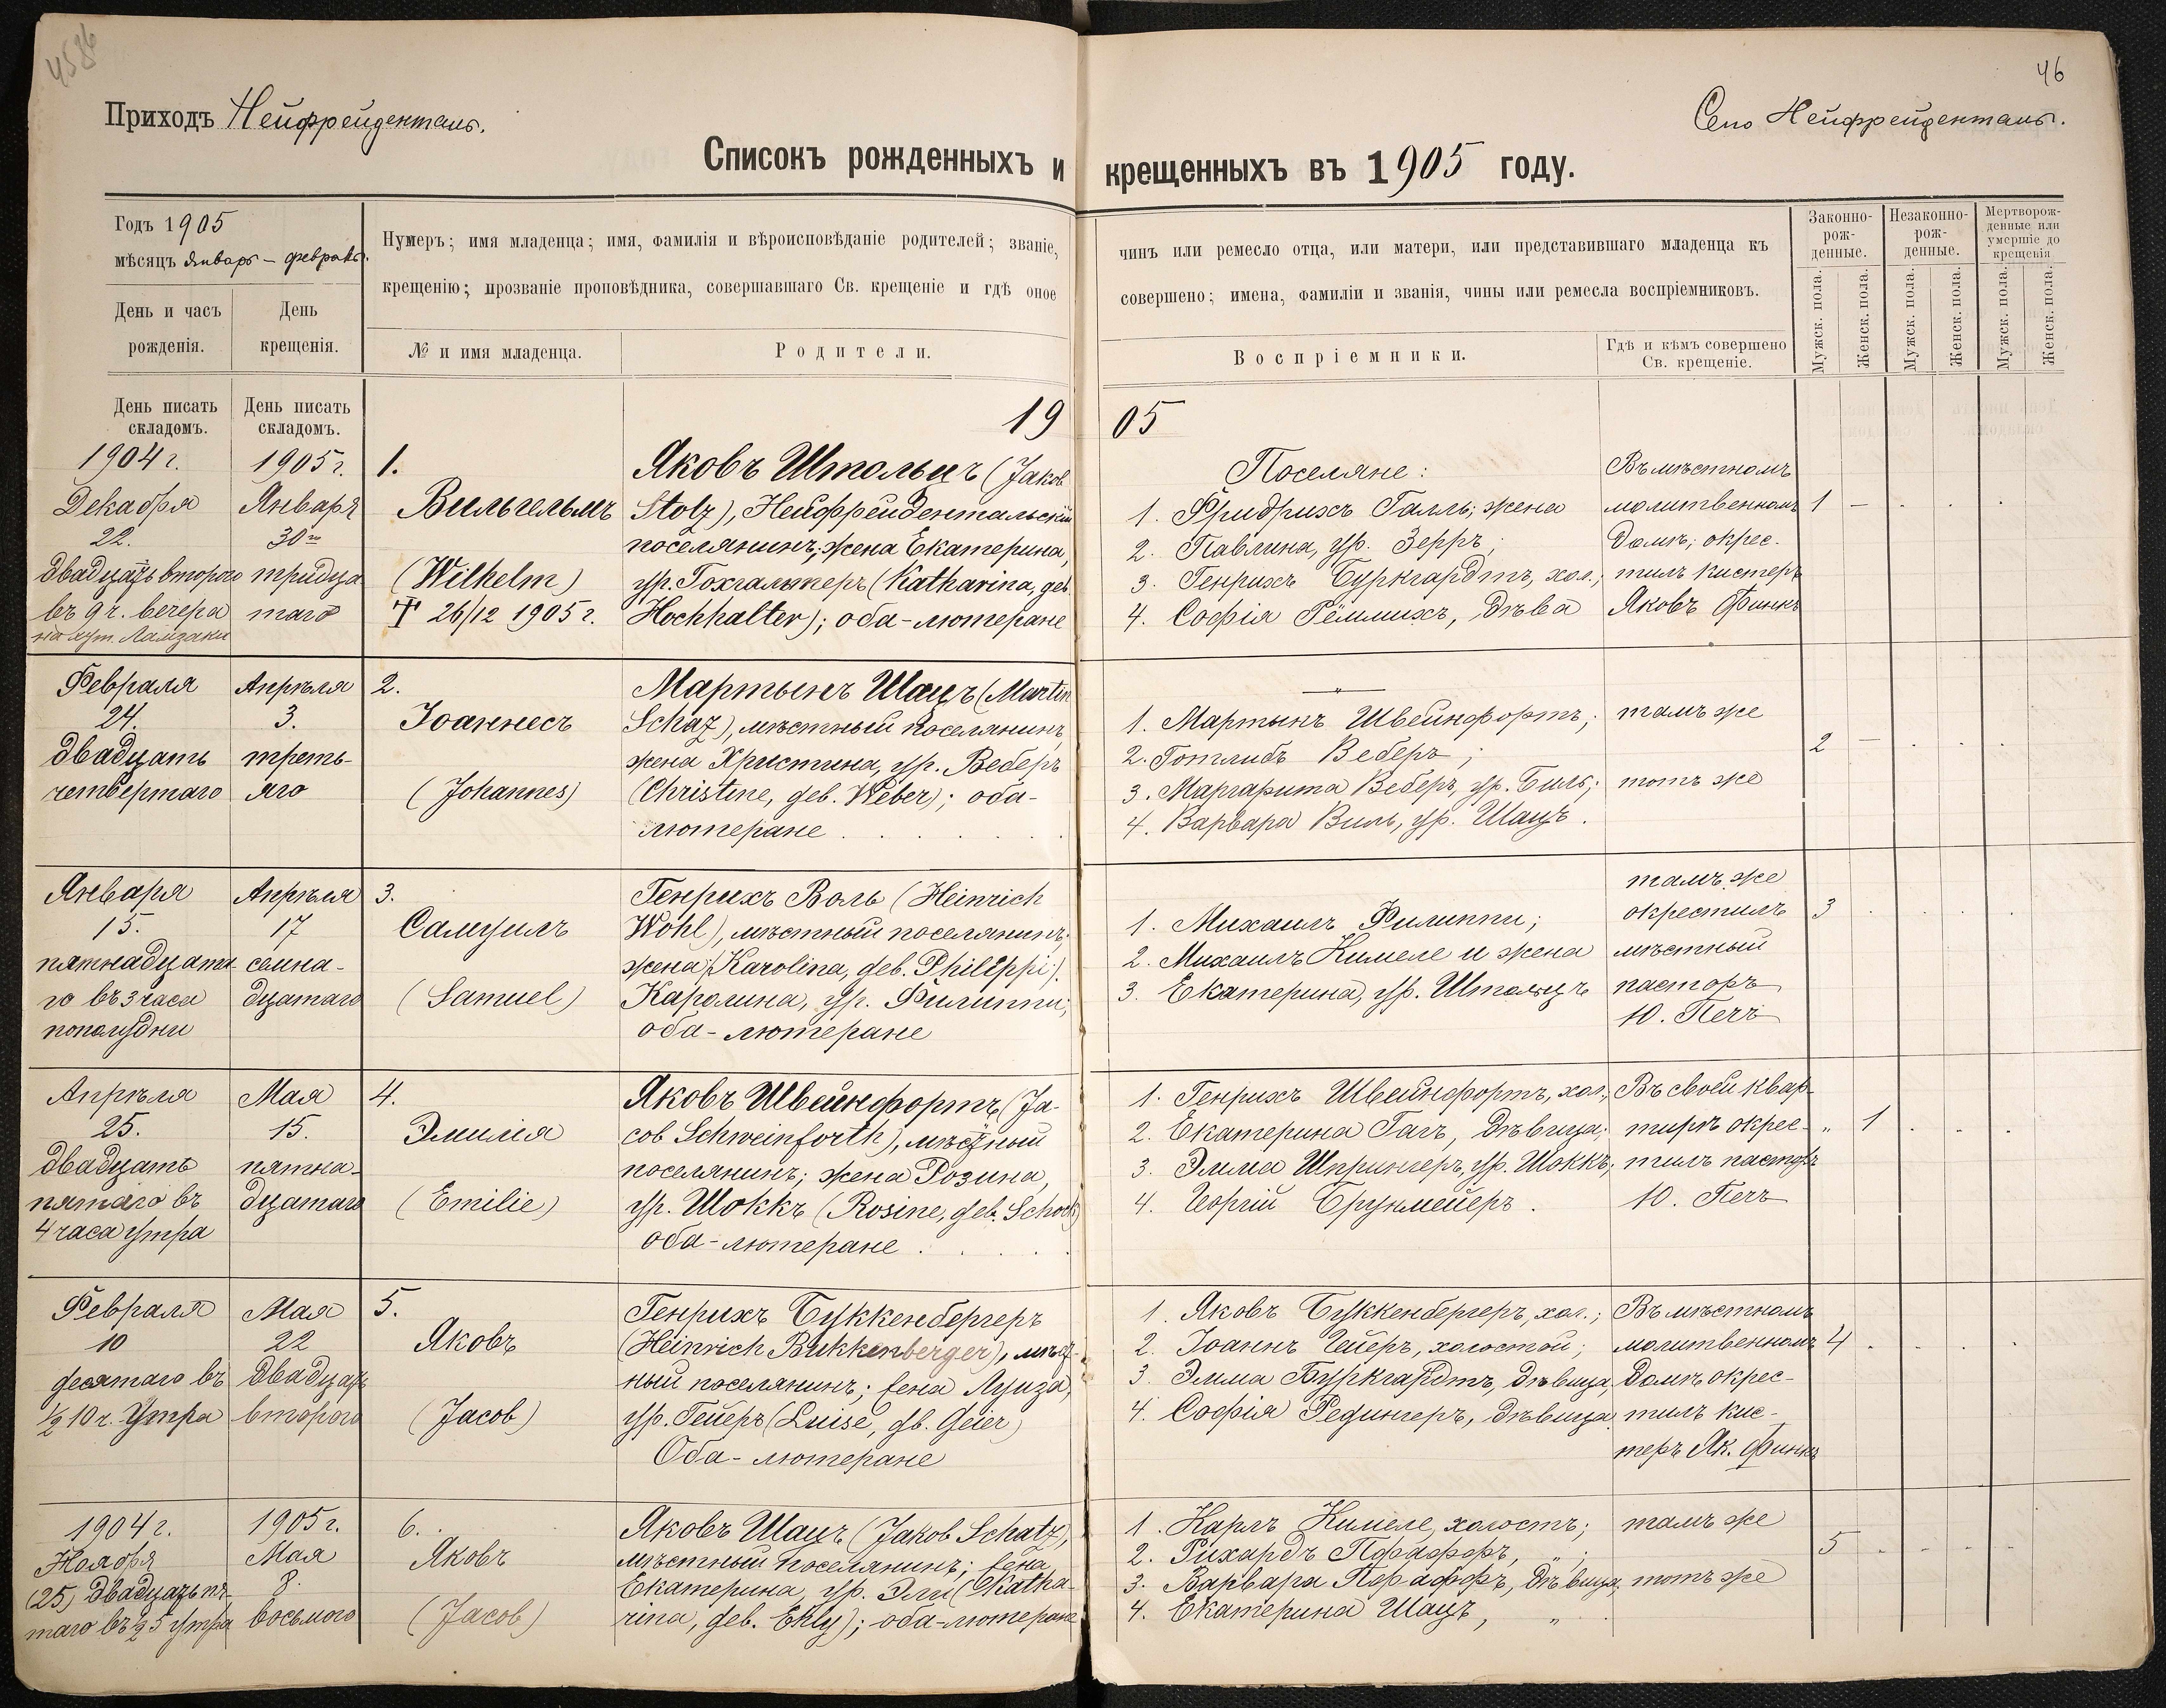 4586
46
Приходъ Нейфрейденталь.
Село Нейфрейденталь.
Списокъ рожденныхъ и крещенныхъ въ 1905 году.
Годъ 1905
мѣсяцъ Январь – февраль.
День и часъ
рожденія.
День
крещенія.
Нумеръ; имя младенца; имя, фамилія и вѣроисповѣданіе родителей; званіе,
крещенію; прозваніе проповѣдника, совершавшаго Св. крещеніе и гдѣ оное
№ и имя младенца.
Родители.
чинъ или ремесло отца, или матери, или представившаго младенца къ
совершено; имена, фамиліи и званія, чины или ремесла воспріемниковъ.
Воспріемники.
Гдѣ и кѣмъ совершено
Св. крещеніе.
Законно-
рож-
денные.
Незаконно-
рож-
денные.
Мертворож-
денные или
умершіе до
крещенія
Мужск. пола.
Женск. пола.
Мужск. пола.
Женск. пола.
Мужск. пола.
Женск. пола.
День писать
складомъ.
День писать
складомъ.
19 05
1904 г.
Декабря
22.
двадцать второго
въ 9 ч. вечера
1905 г.
Января
30го
тридца
таго
1.
Вильгельмъ
(Wilhelm)
† 26/12 1905 г.
Яковъ Штольцъ (Jakob
Stolz), Нейфрейдентальскій
поселянинъ; жена Екатерина,
ур. Гохгальтеръ (Katharina, geb.
Hochhalter); оба-лютеране
Поселяне:
1. Фридрихъ Галль; жена
2. Павлина, ур. Зерръ;
3. Генрихъ Буркгардтъ, хол.;
4. Софія Рёммихъ, дѣва
Въ мѣстномъ
молитвенномъ
домѣ; окрес-
тилъ кистеръ
Яковъ Финкъ
1 –
Февраля
24.
двадцать
четвертаго
Апрѣля
3.
треть-
яго
2.
Іоаннесъ
(Johannes)
Мартынъ Шацъ (Martin
Schaz), мѣстный поселянинъ,
жена Христина, ур. Веберъ
(Christine, geb. Weber); оба-
лютеране
—"—
1. Мартынъ Швейнфортъ;
2. Готлибъ Веберъ;
3. Маргарита Веберъ, ур. Биль;
4. Варвара Виль, ур. Шацъ.
тамъ же
тотъ же
2 –
Января
15.
пятнадцата-
го въ 3 часа
пополудни
Апрѣля
17
семна-
дцатаго
3.
Самуилъ
(Samuel)
Генрихъ Воль (Heinrich
Wohl), мѣстный поселянинъ;
жена (Karolina, geb. Philippi).
Каролина, ур. Филиппи;
оба-лютеране
1. Михаилъ Филиппи;
2. Михаилъ Кимеле и жена
3. Екатерина, ур. Штольцъ
тамъ же
окрестилъ
мѣстный
пасторъ
Ю. Печъ
3
Апрѣля
25.
двадцать
пятаго въ
4 часа утра
Мая
15.
пятна-
дцатаго
4.
Эмилія
(Emilie)
Яковъ Швейнфортъ (Ja-
cob Schweinforth), мѣстный
поселянинъ; жена Розина,
ур. Шоккъ (Rosine, geb. Schock)
оба-лютеране
1. Генрихъ Швейнфортъ, хол.;
2. Екатерина Гагъ, дѣвица;
3. Эмма Шпрингеръ, ур. Шоккъ;
4. Георгій Брукмейеръ.
Въ своей квар-
тирѣ окрес-
тилъ пасторъ
Ю. Печъ
" 1
Февраля
10
десятаго въ
½ 10 ч. утра
Мая
22
двадцать
второго
5.
Яковъ
(Jacob)
Генрихъ Буккенбергеръ
(Heinrich Bukkenberger), мѣст-
ный поселянинъ; жена Луиза,
ур. Гейеръ (Luise, gb. Geier)
Оба-лютеране
1. Яковъ Буккенбергеръ, хол.;
2. Іоаннъ Гейеръ, холостой;
3. Эмма Буркгардтъ, дѣвица,
4. Софія Редингеръ, дѣвица
Въ мѣстномъ
молитвенномъ
домѣ окрес-
тилъ кис-
теръ Як. Финкъ
4
1904 г.
Ноября
(25) двадцать пя-
таго въ ½ 5 утра
1905 г.
Мая
8.
восьмого
6.
Яковъ
(Jacob)
Яковъ Шацъ (Jakob Schatz),
мѣстный поселянинъ; жена
Екатерина, ур. Эли (Katha-
rina, geb. Ehly); оба-лютеране
1. Карлъ Кимеле, холостъ;
2. Рихардъ Пфаффъ, " ;
3. Варвара Пфаффъ, дѣвица,
4. Екатерина Шацъ, "
тамъ же
тотъ же
5